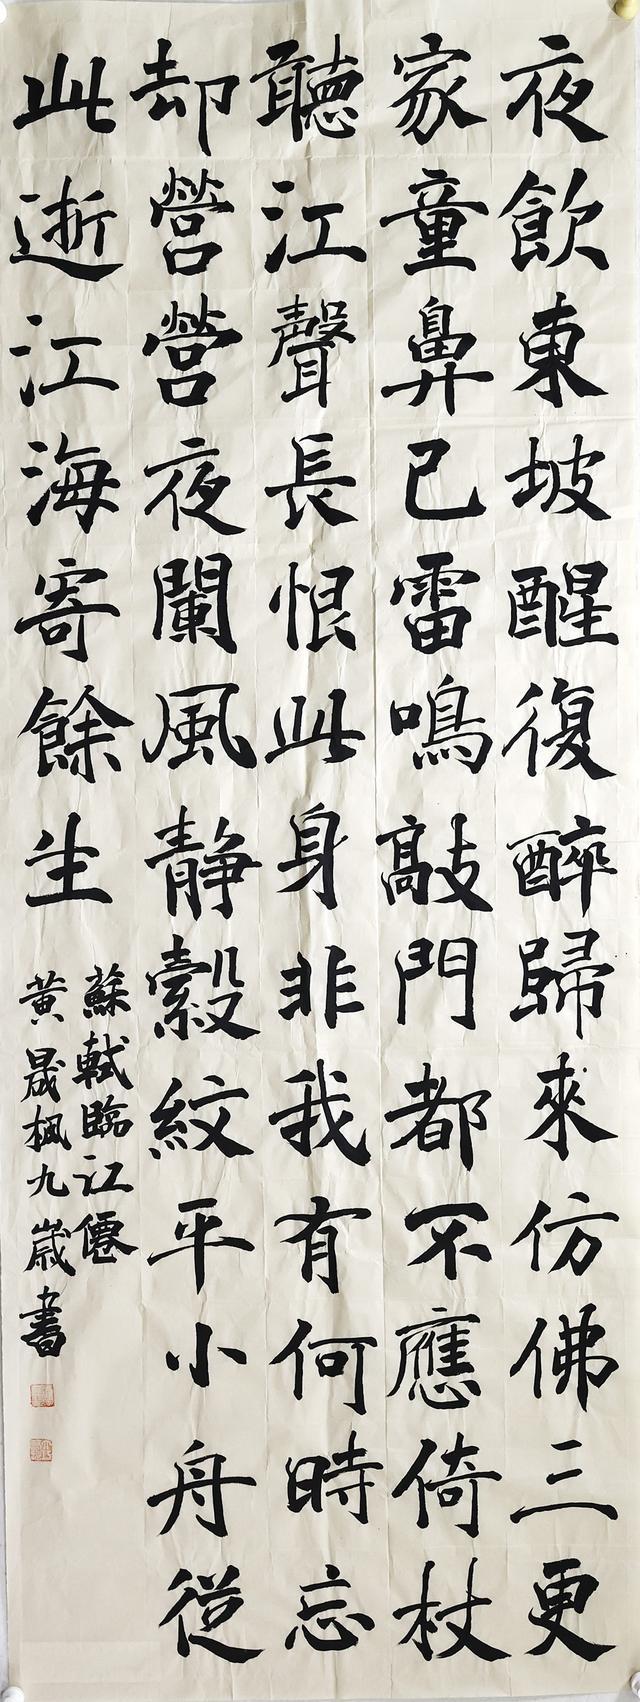 夜飲東坡醒復醉歸來仿佛三更
家童鼻已雷鳴敲門都不應倚杖
聽江聲長恨此身非我有何時忘
却營營夜闌風静縠紋平小舟從
此逝江海寄餘生
蘇軾臨江僊
黄晟楓九歲書